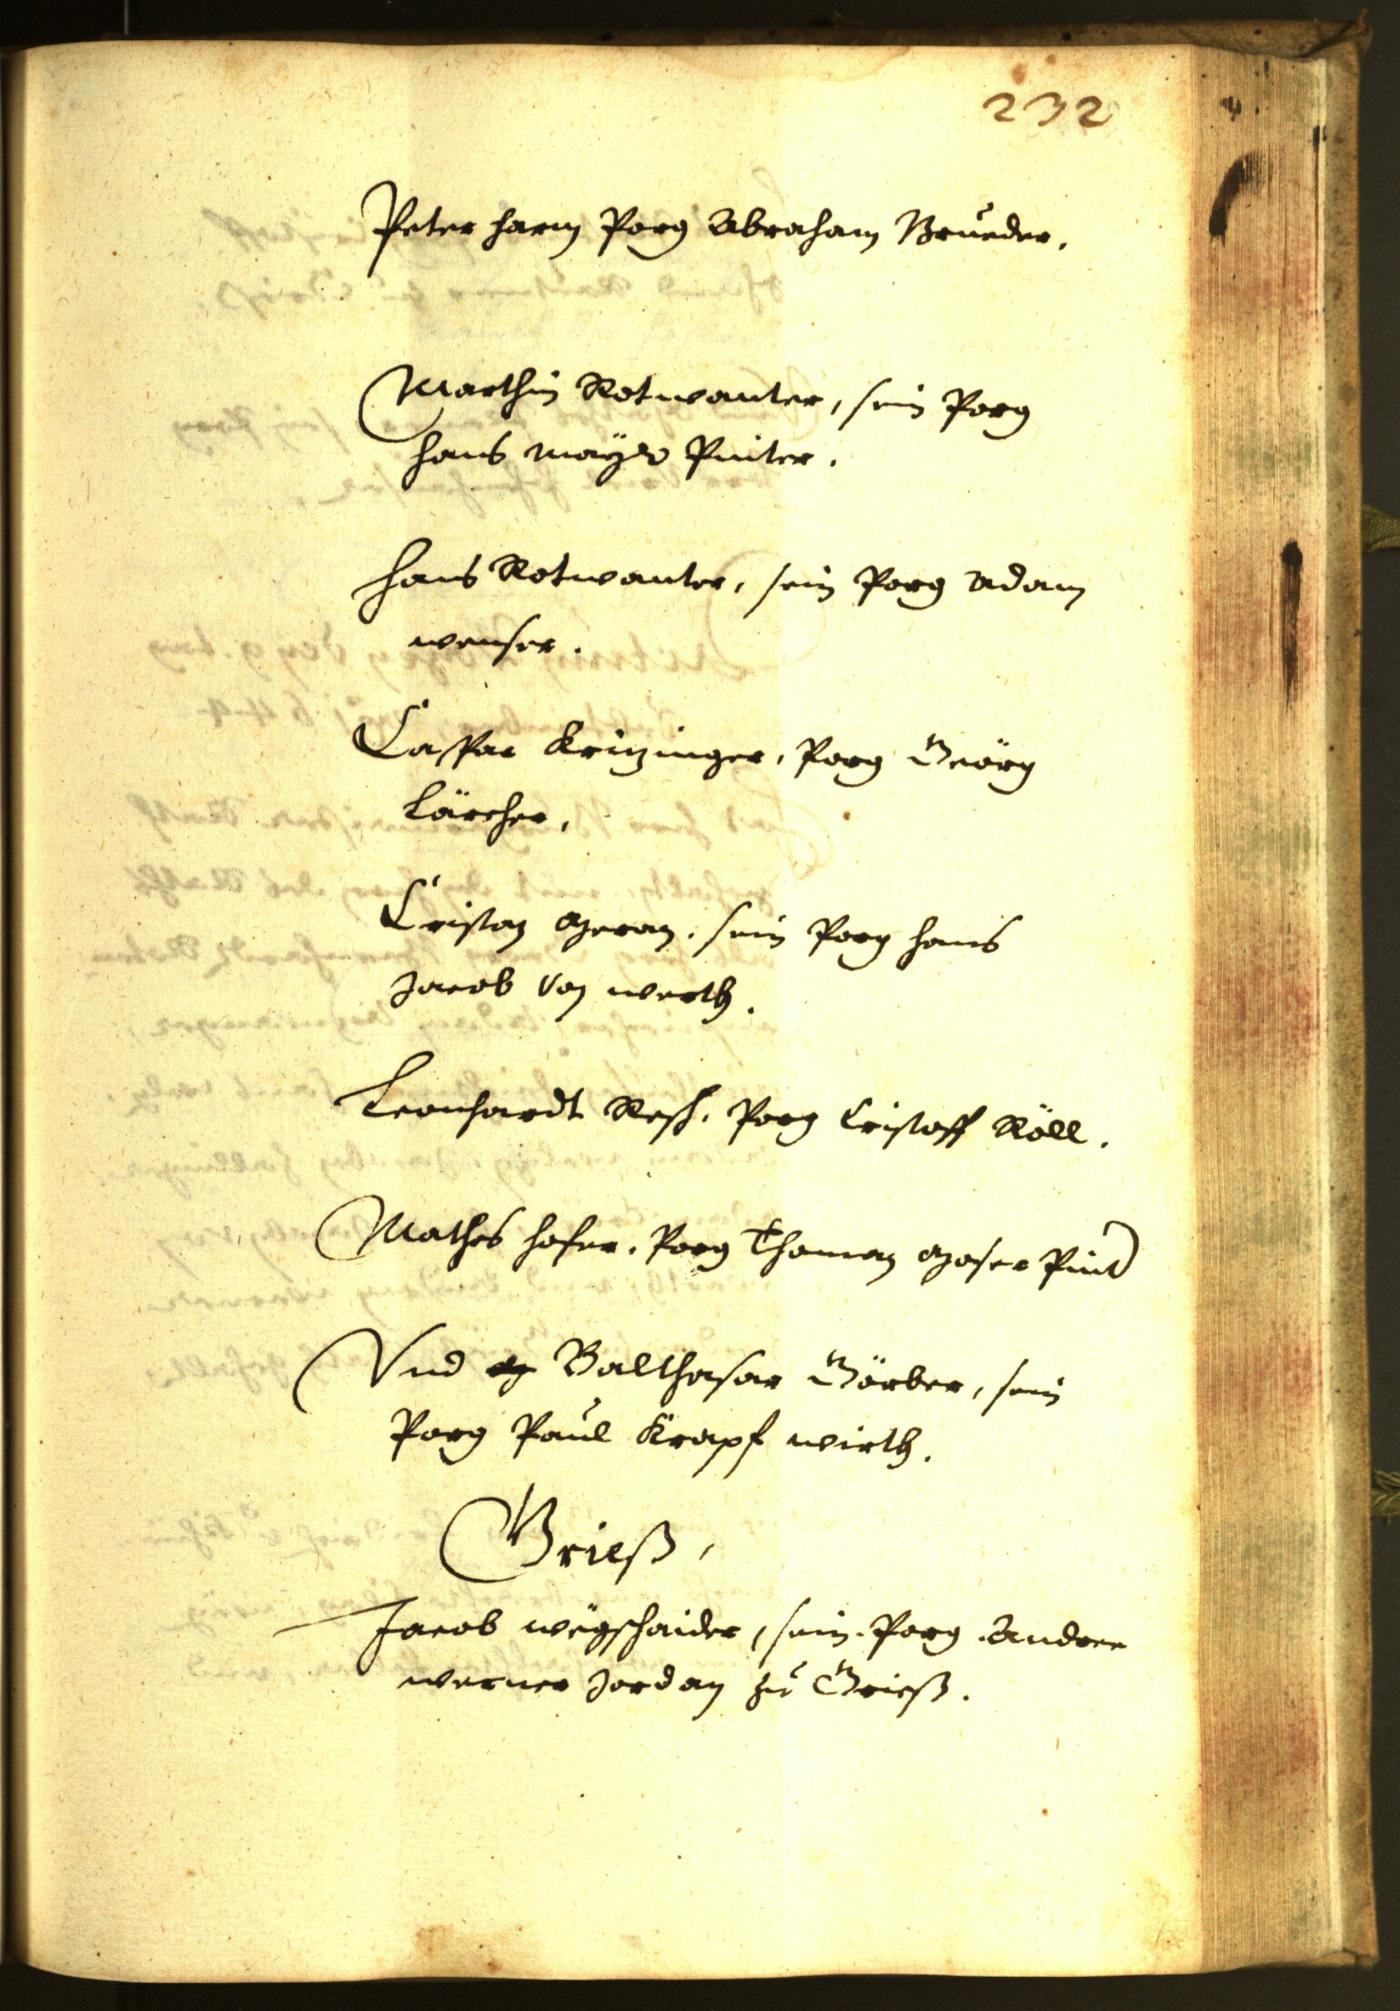 232
Peter harm Porg Abraham Brueder.
Marthin Rotwanter, sein Porg
hans mayr Pinter.
hans Rotwanter, sein Porg Adam
wenser.
Caspar Krinzinger, Porg Geörg
Lärcher,
Cristan Meran, sein Porg hans
Jacob von werth.
Leonhardt Resch, Porg Cristoff Röll.
Mathes hofer, Porg Thoman Moser Pint
Vnd Balthasar Görber, sein
Porg Paul Krapf wirth.
Grieß,
Jacob wegschaider, sein Porg Andree
werner Jordan zu Grieß.